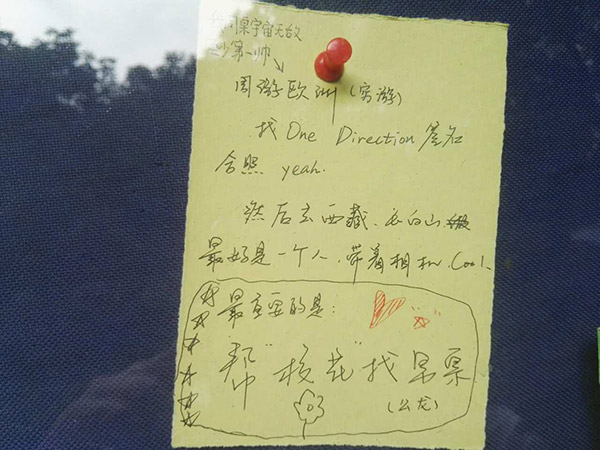 桌宇宙无敌
第一帅
周游欧洲(穷游)
找 One Direction 签名
合照 yeah.
然后去西藏、长白山
最好是一个人、带着相机. Cool.
最重要的是:
帮"校花"找果果
(公龙)